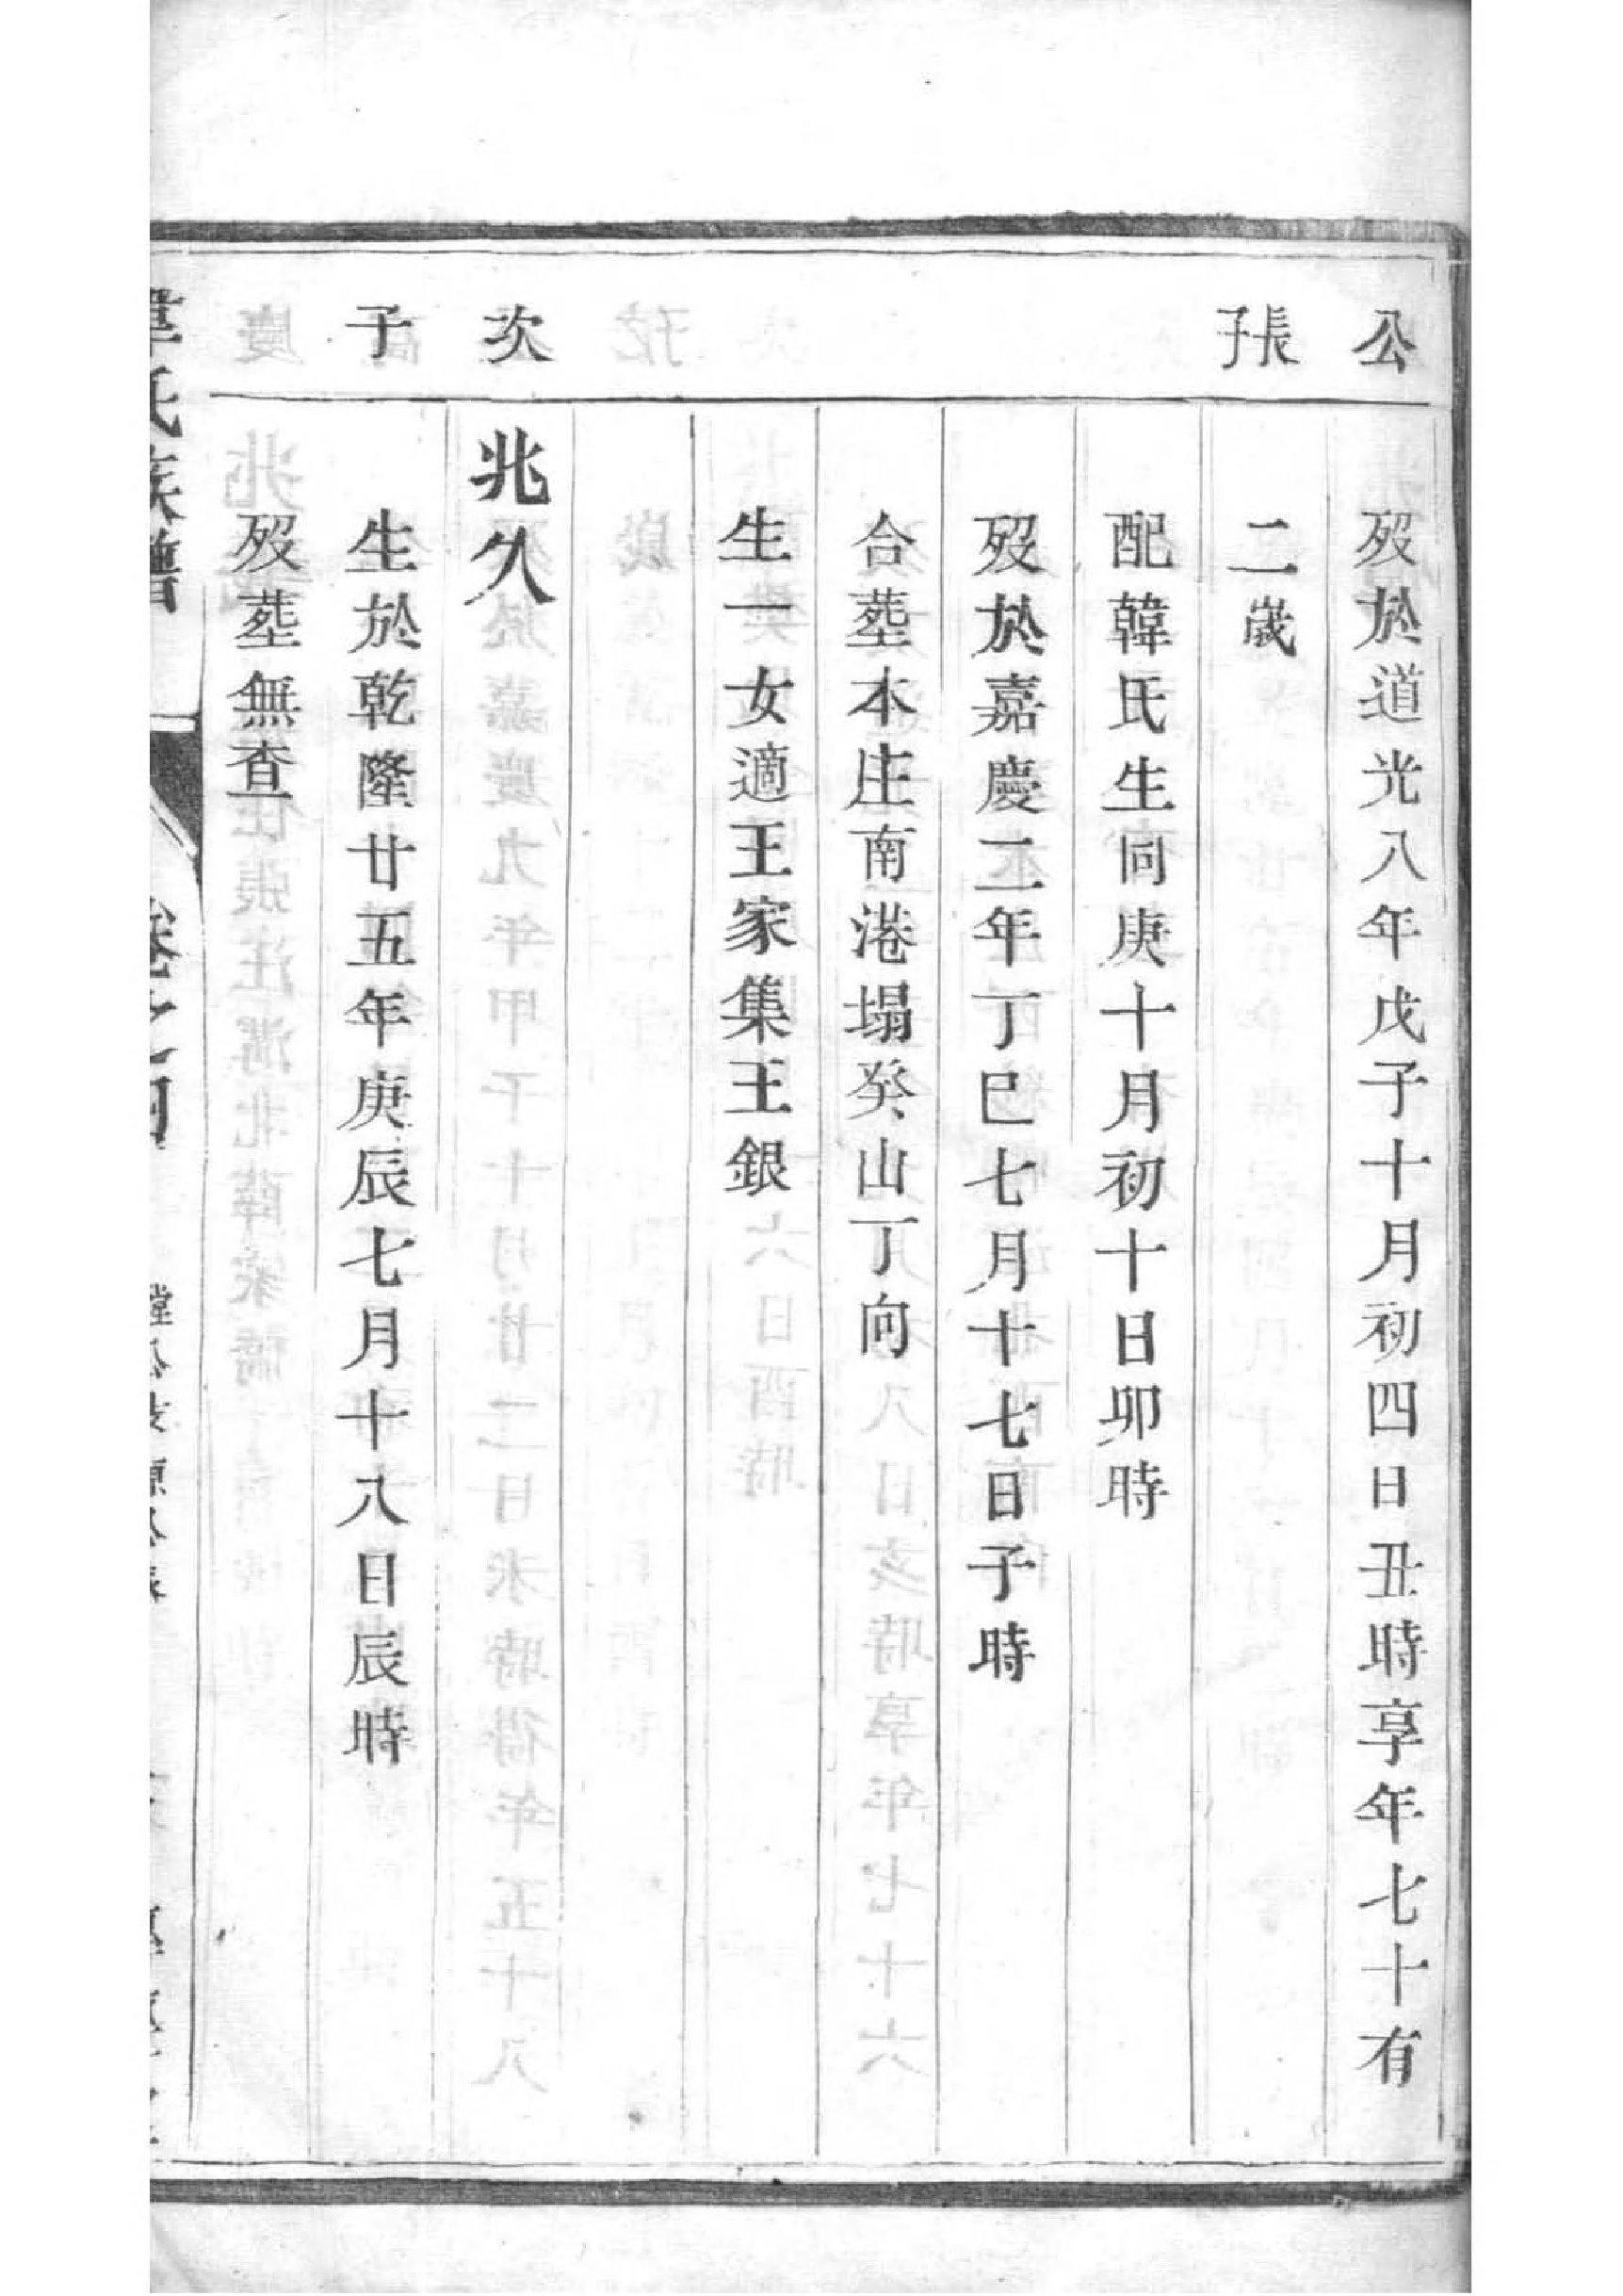 公
長子
次
子
殁於道光八年戊子十月初四日丑時享年七十有
二歲
配韓氏生同庚十月初十日卯時
殁於嘉慶二年丁巳七月十七日子時
合塟本庄南港塌癸山丁向
生一女適王家集王銀
兆久
生於乾隆廿五年庚辰七月十八日辰時
殁塟無查
氏族譜
卷之四